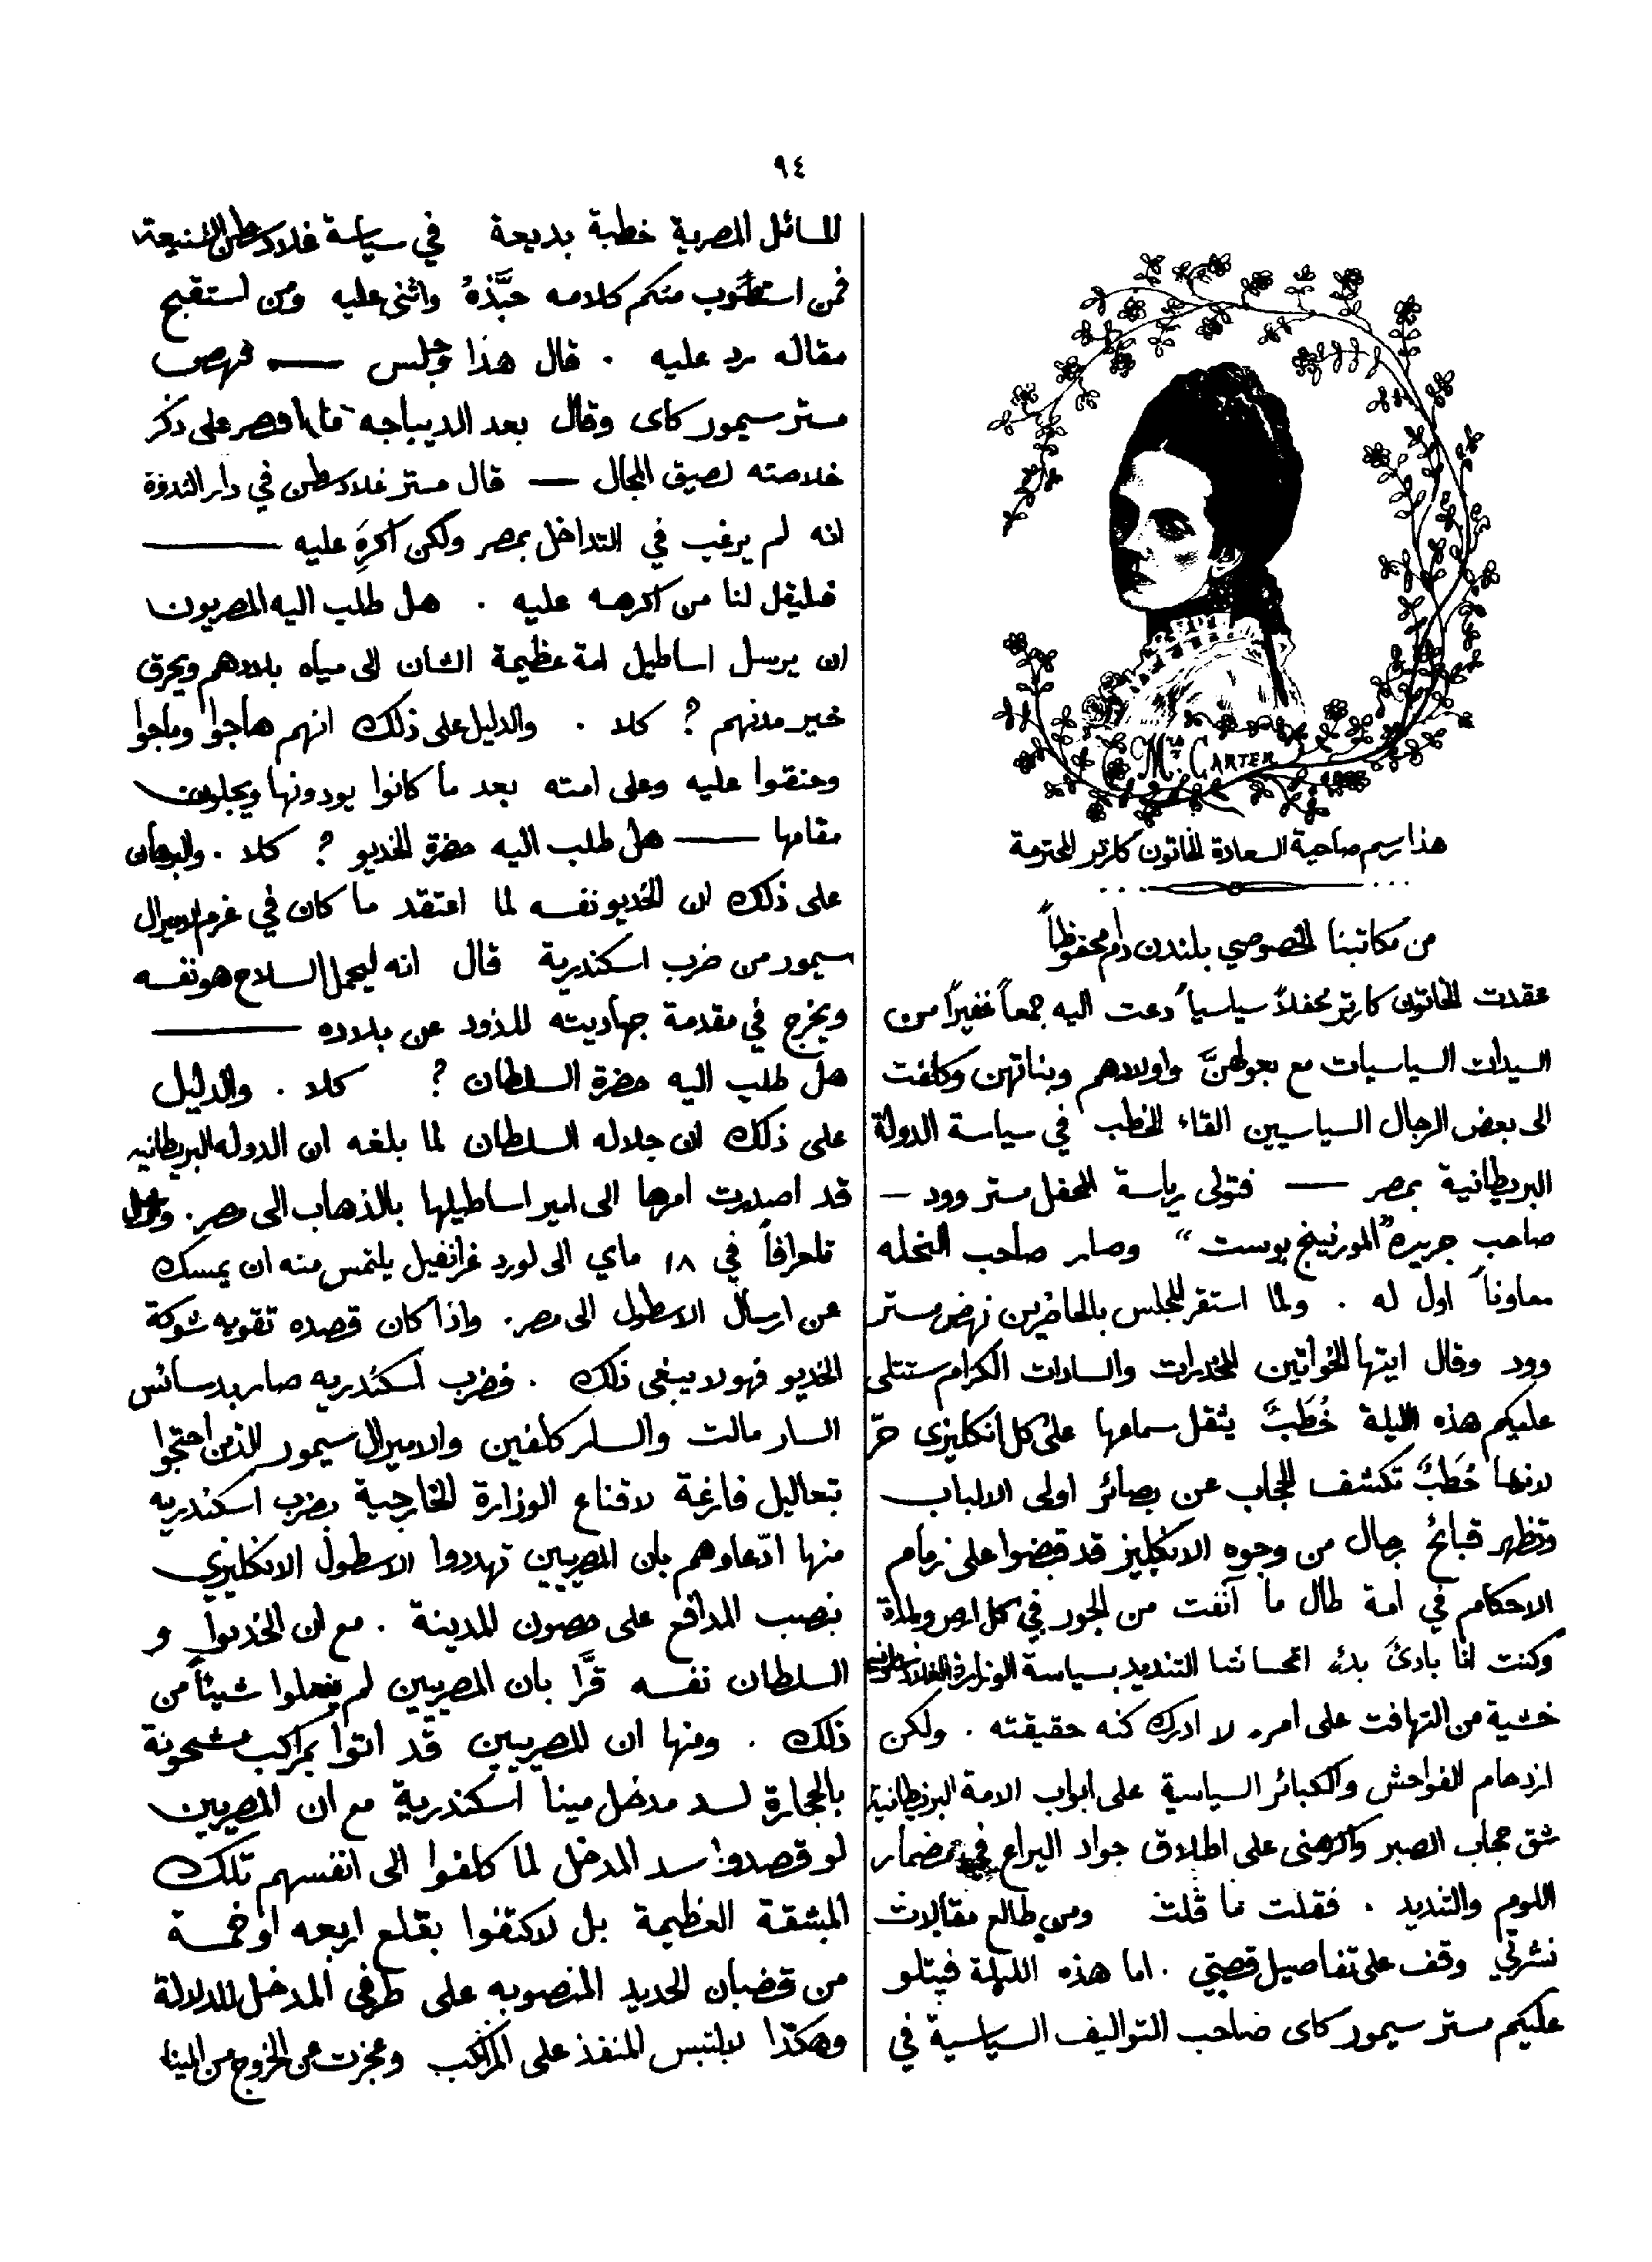 ٩٤
Mrs. CARTER
هذا رسم صاحبة السعادة الخاتون كارتر المحترمة
من مكاتبنا الخصوصي بلندن دام محفوظاً
عقدت الخاتون كارتر محفلاً سياسياً دعت اليه جمعاً غفيراً من
السيدات السياسيات مع بعولهنَّ واولادهم وبناتهن وكلفت
الى بعض الرجال السياسيين القاء الخطب في سياسة الدولة
البريطانية بمصر — فتولى رياسة المحفل مستر وود —
صاحب جريدة "المورنينج بوست" وصار صاحب النحله
معاوناً اول له . ولما استقر المجلس بالحاضرين نهض مستر
وود وقال ايتها الخواتين المخدرات والسادات الكرام ستتلى
عليكم هذه الليلة خُطَبٌ يثقل سماعها على كل انكليزي حرّ
لانها خُطَبٌ تكشف الحجاب عن بصائر اولى الالباب
وتظهر قبائح رجال من وجوه الانكليز قد قبضوا على زمام
الاحكام في امة طال ما آنفت من الجور في كل ارض وبلدة
وكنت انا بادئ بدء اتحاشا التنديد بسياسة الوزارة الغلادسطونيه
خشية من التهافت على امر لا ادرك كنه حقيقته . ولكن
ازدحام الفواحش والكبائر السياسية على ابواب الامة البريطانية
شق حجاب الصبر واكرهنى على اطلاق جواد اليراع في مضمار
اللوم والتنديد . فقلت ما قلت ومن طالع مقالات
نشرتي وقف على تفاصيل قصتي . اما هذه الليلة فيتلو
عليكم مستر سيمور كاى صاحب التواليف السياسية في
المسائل المصرية خطبة بديعة في سياسة غلادسطن الشنيعة
فمن استصوب منكم كلامه حبَّذهُ واثنى عليه ومن استقبح
مقاله رد عليه . قال هذا وجلس — فنهض
مستر سيمور كاى وقال بعد الديباجه ما اقصر على ذكر
خلاصته لضيق المجال — قال مستر غلادسطن في دار الندوة
انه لم يرغب في التداخل بمصر ولكن اكرِهَ عليه —
فليقل لنا من اكرهه عليه . هل طلب اليه المصريون
ان يرسل اساطيل امة عظيمة الشان الى مياه بلادهم ويحرق
خير مدنهم ? كلا . والدليل على ذلك انهم هاجوا وماجوا
وحنقوا عليه وعلى امته بعد ما كانوا يودونها ويجلون
مقامها — هل طلب اليه حضرة الخديو ? كلا . والبرهان
على ذلك ان الخديو نفسه لما اعتقد ما كان في عزم الاميرال
سيمور من ضرب اسكندرية قال انه ليحمل السلاح هو نفسه
ويخرج في مقدمة جهاديته للذود عن بلاده —
هل طلب اليه حضرة السلطان ? كلا . والدليل
على ذلك ان جلاله السلطان لما بلغه ان الدوله البريطانيه
قد اصدرت امرها الى امير اساطيلها بالذهاب الى مصر .
تلغرافاً في ١٨ ماي الى لورد غرانفيل يلتمس منه ان يمسك
عن ارسال الاسطول الى مصر . واذا كان قصده تقويه شوكة
الخديو فهو لا يبغى ذلك . فضرب اسكندريه صار بدسائس
السار مالت والسلر كلفين والاميرال سيمور الذين احتجوا
بتعاليل فارغة لاقناع الوزارة الخارجية بضرب اسكندريه
منها ادّعاوهم بان المصريين تهددوا الاسطول الانكليزي
بنصب المدافع على حصون المدينة . مع ان الخديو و
السلطان نفسه قرَّا بان المصريين لم يفعلوا شيئاً من
ذلك . ومنها ان المصريين قد اتوا بمراكب مشحونة
بالحجارة لسد مدخل مينا اسكندرية مع ان المصريين
لو قصدوا سد المدخل لما كلفوا الى انفسهم تلك
المشقة العظيمة بل لاكتفوا بقلع اربعه او خمسة
من قضبان الحديد المنصوبه على طرفي المدخل للدلالة
وهكذا لالتبس المنفذ على المراكب وعجزت عن الخروج من المينا